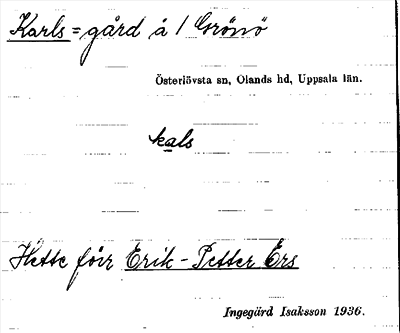 Karls = gård å / Grönö
Österlövsta sn, Olands hd, Uppsala län.
kals
Hette förr Erik - Petter Ers
Ingegärd Isaksson 1936.